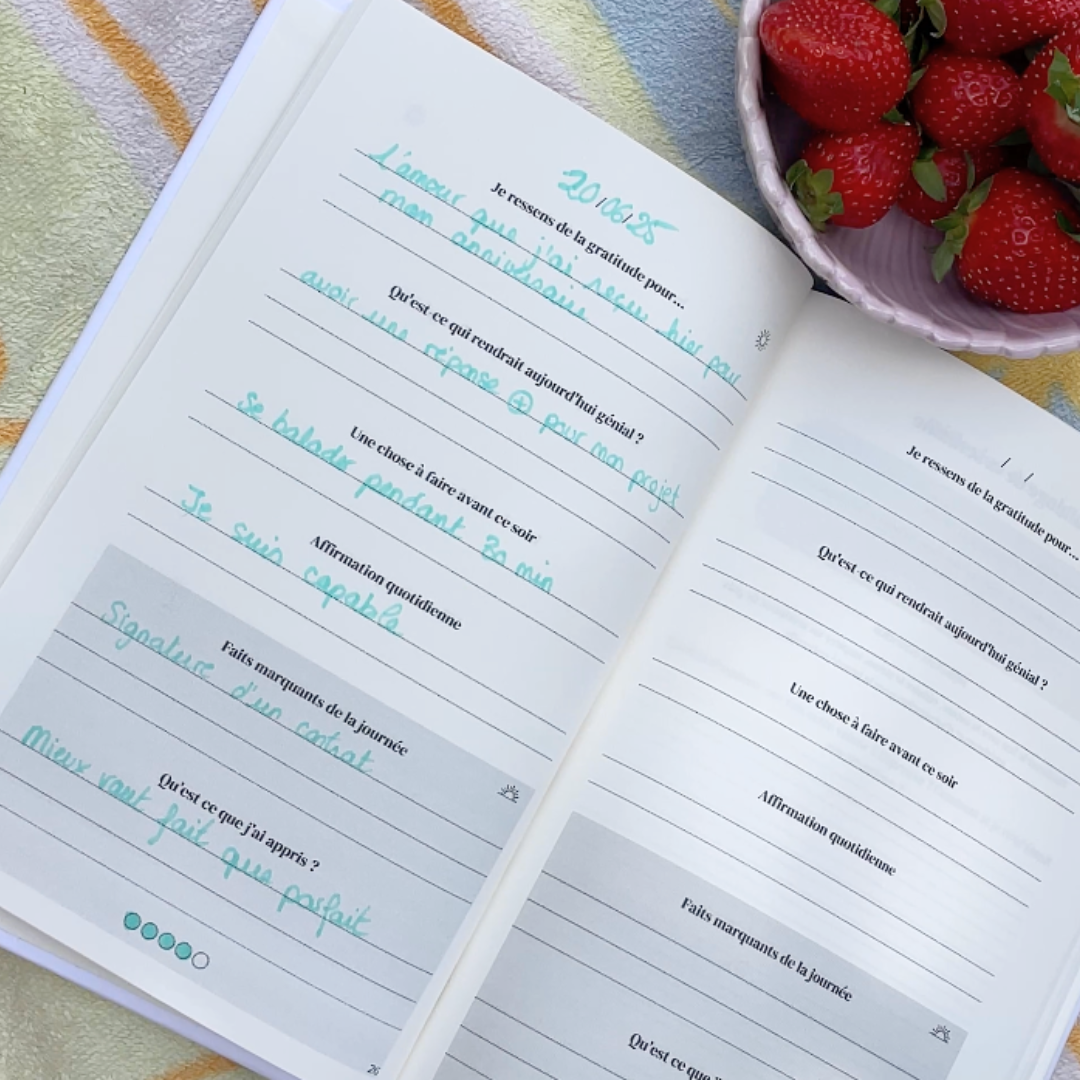 20/06/25
Je ressens de la gratitude pour...
L'amour que j'ai reçu hier pour
mon anniversaire
Qu'est-ce qui rendrait aujourd'hui génial ?
avoir une réponse ⊕ pour mon projet
Une chose à faire avant ce soir
Se balader pendant 30 min
Affirmation quotidienne
Je suis capable
Faits marquants de la journée
Signature d'un contrat
Qu'est ce que j'ai appris ?
Mieux vaut fait que parfait
26
/ /
Je ressens de la gratitude pour...
Qu'est-ce qui rendrait aujourd'hui génial ?
Une chose à faire avant ce soir
Affirmation quotidienne
Faits marquants de la journée
Qu'est ce que